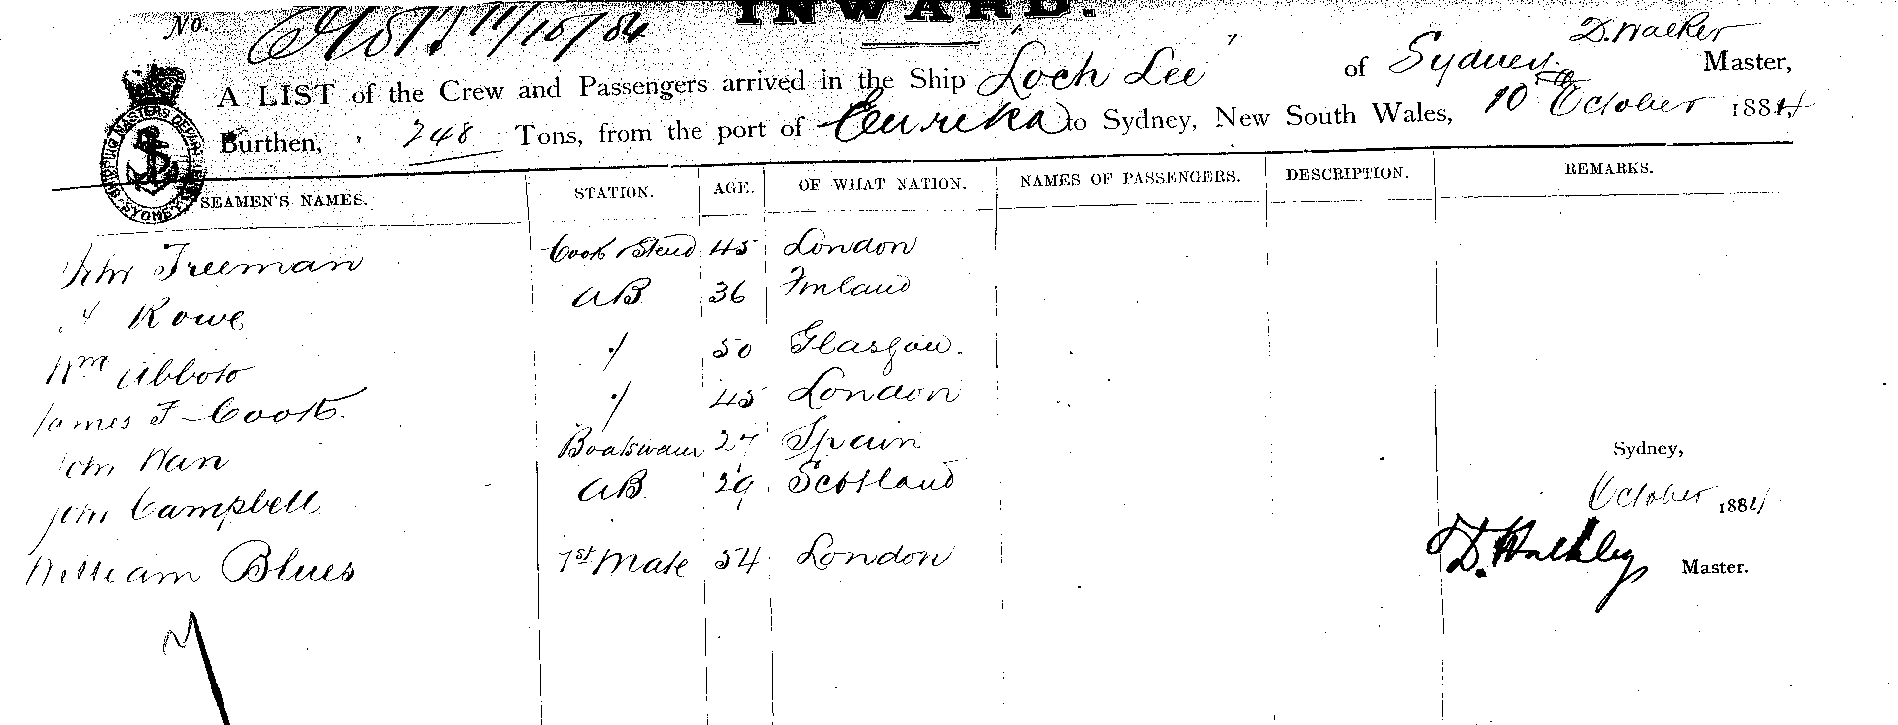 INWARD.
No. 11/10/84
D. Walker
A LIST of the Crew and Passengers arrived in the Ship Loch Lee of Sydney Master,
Burthen, 248 Tons, from the port of Eureka to Sydney, New South Wales, 10th October 1884
SEAMEN'S NAMES. STATION. AGE. OF WHAT NATION. NAMES OF PASSENGERS. DESCRIPTION. REMARKS.
John Freeman Cook & Steud 45 London
A Rowe AB 36 Finland
Wm Abbots 50 Glasgow.
James F Cook 45 London
John Nan Boatswain 27 Spain
Sydney,
John Campbell AB 29 Scotland
October 1884
William Blues 1st Mate 54 London
D. Master.